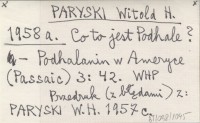 PARYSKI Witold H.
1958 a. Co to jest Podhale?
– Podhalanin w Ameryce
(Passaic) 3: 42. WHP
Przedruk (z błędami) z:
PARYSKI W.H. 1957 c